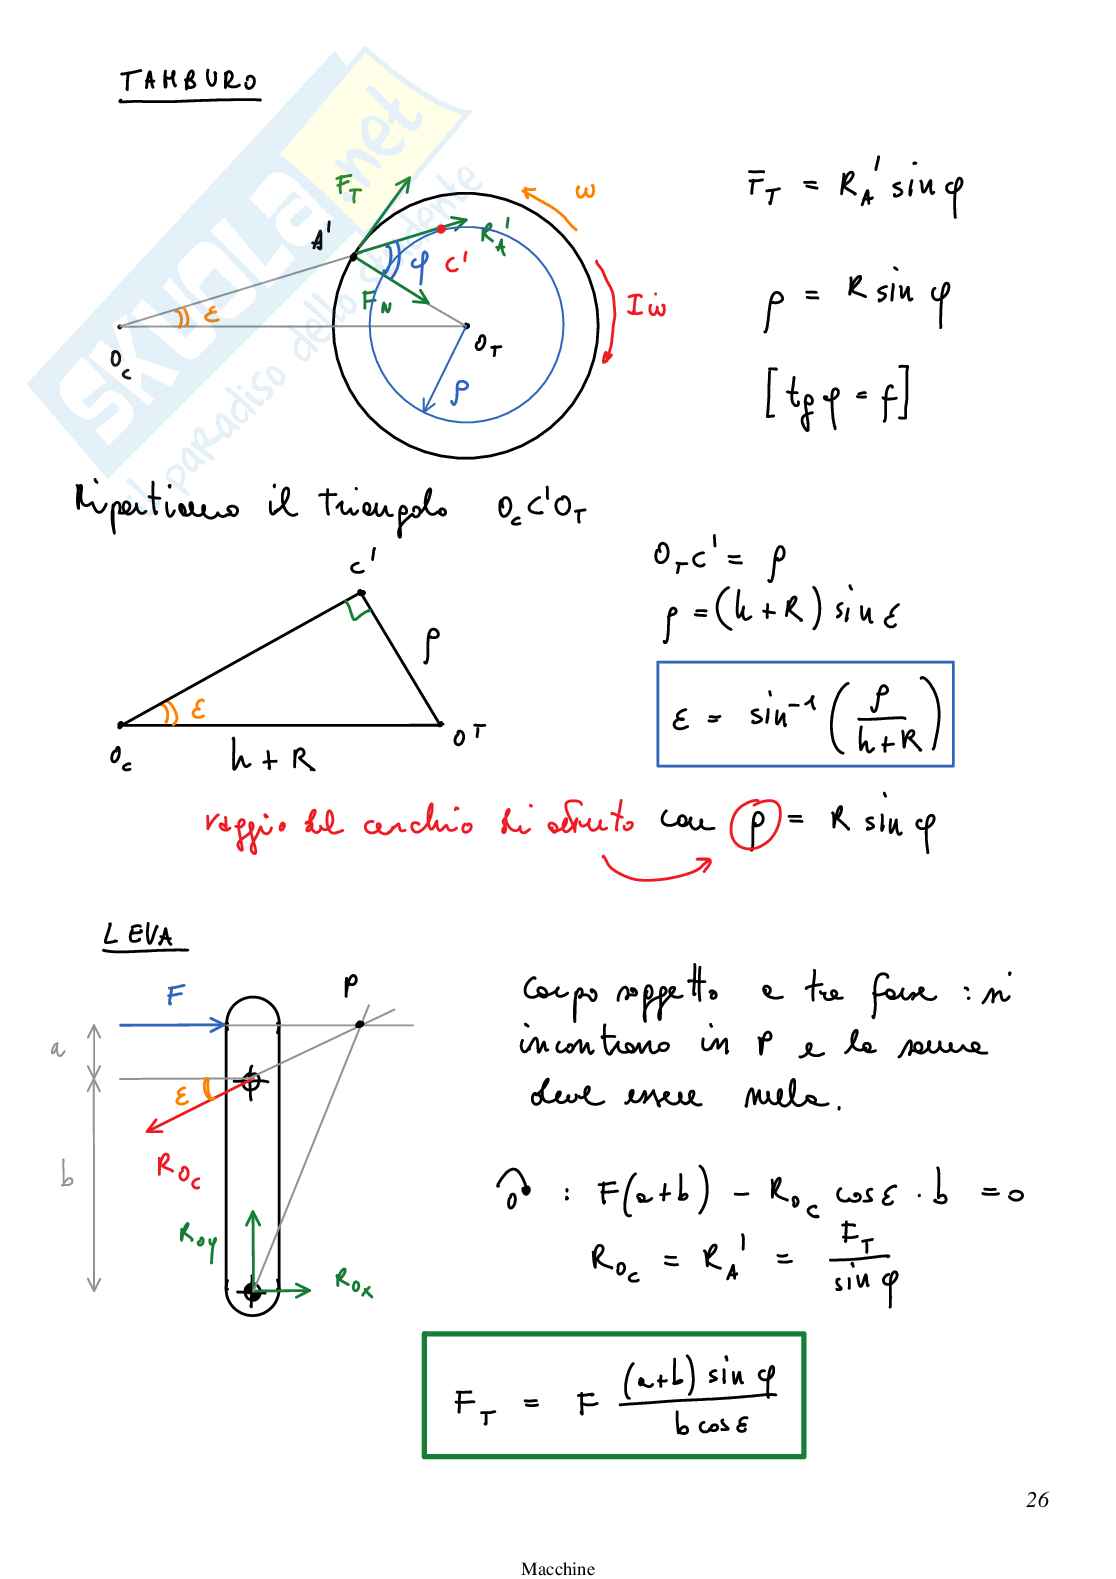 TAMBURO
SKUOLA.net
il paradiso dello studente
F_T
ω
A'
R_A'
φ
C'
F_N
ε
O_C
O_T
ρ
Iω̇
F_T = R_A' sin φ
ρ = R sin φ
[tg φ = f]
Ripartiamo il triangolo O_C C' O_T
C'
ρ
ε
O_C
h + R
O_T
O_T C' = ρ
ρ = (h + R) sin ε
ε = sin⁻¹ (ρ / (h + R))
raggio del cerchio di attrito con ρ = R sin φ
LEVA
F
P
a
ε
R_OC
b
R_Oy
R_Ox
Corpo soggetto a tre forze : si
incontrano in P e la somma
deve essere nulla.
O : F(a+b) - R_OC cos ε · b = 0
R_OC = R_A' = F_T / sin φ
F_T = F (a+b) sin φ / (b cos ε)
26
Macchine